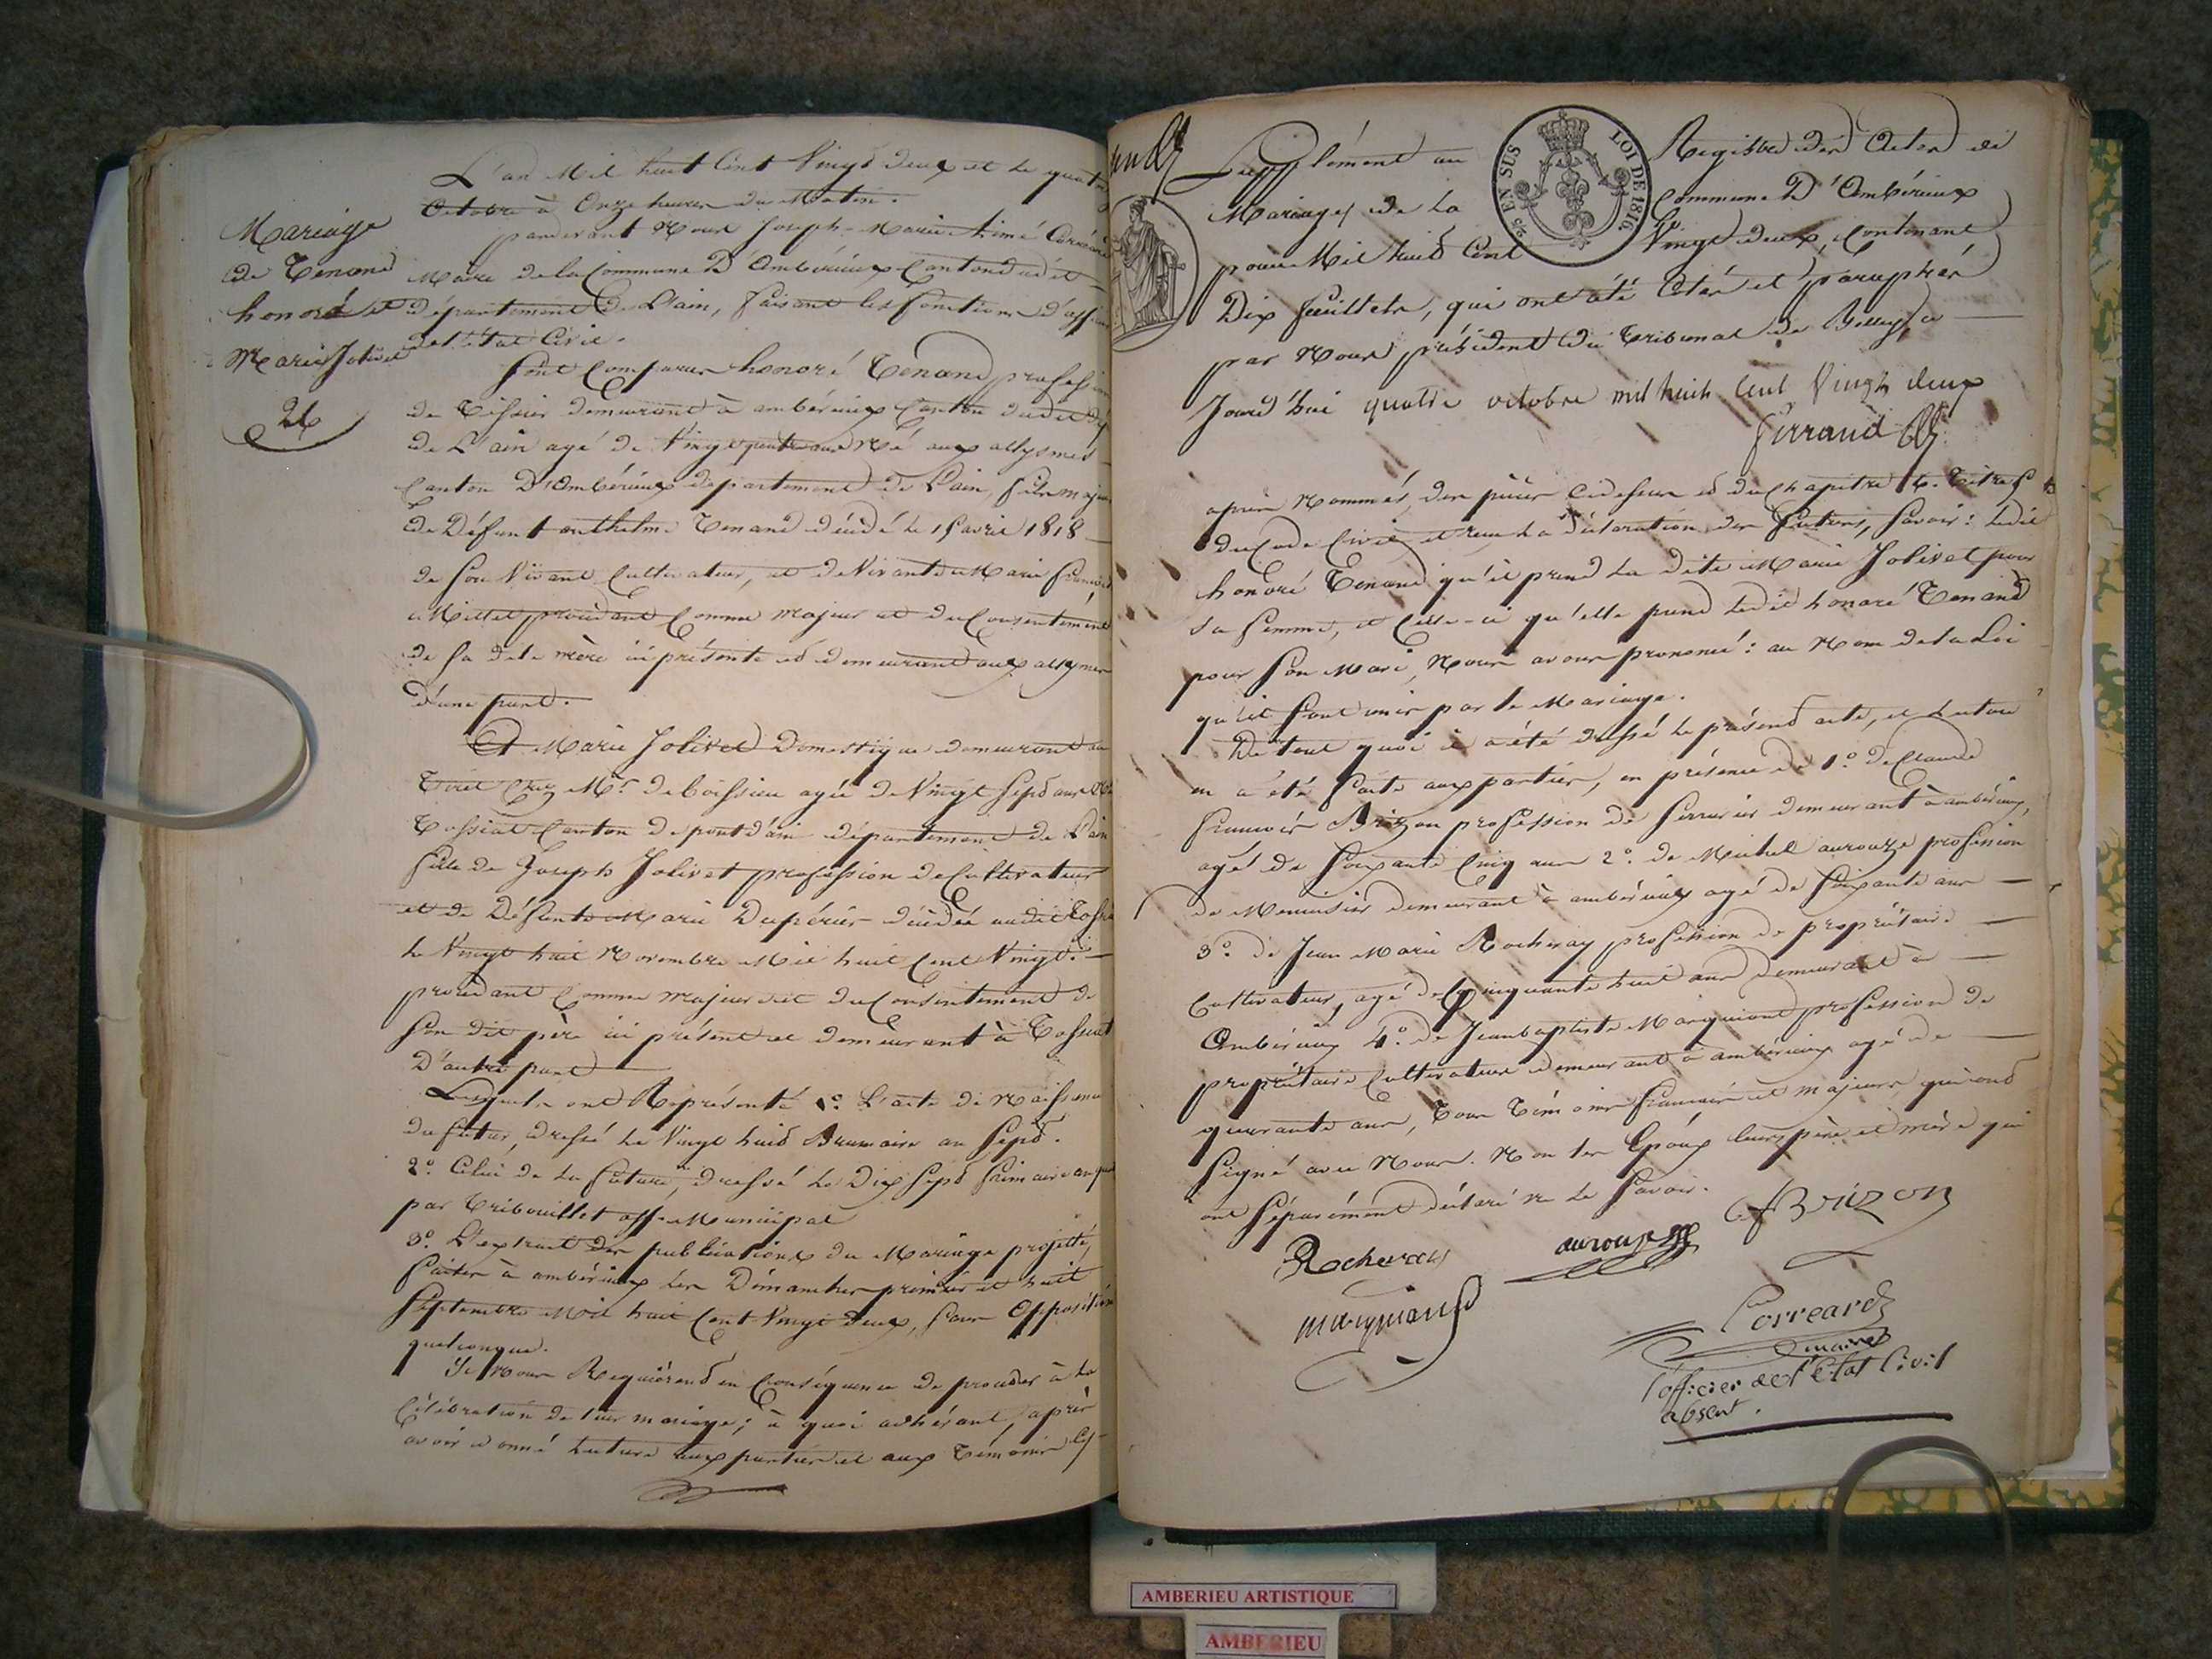 L'an Mil huit Cent Vingt deux et le quatre
Octobre à Onze heures du Matin.
pardevant Nous Joseph-Marie-Aimé Corréard
Maire de la Commune D'Ambérieux Canton dudit
département de L'ain, faisant les fonctions d'officier
de l'état Civil.
Mariage
de Tenand
honoré et
Marie Jolivet
24
Sont Comparus honoré Tenand profession
de Tissier demeurant à ambérieux Canton dudit dép
de L'ain agé de Vingt quatre ans Né aux allymes
Canton D'Ambérieux département de L'ain, fils majeur
de Défunt anthelme Tenand décédé le 15 avril 1818
de son Vivant Cultivateur, et de Vivante Marie françoise
Millet procédant Comme majeur et du Consentement
de sa dite mère ici présente et demeurant aux allymes
D'une part.
Et Marie Jolivet Domestique demeurant au
Tiret Chez Mr. de boissieu agée de Vingt sept ans Née
Tossiat Canton de pont d'ain département de L'ain
fille de Joseph Jolivet profession de Cultivateur
et de Défunte Marie Dupérier décédée audit Tossiat
le Vingt huit Novembre Mil huit Cent Vingt.
procédant Comme majeure et du Consentement de
son dit père ici présent et demeurant à Tossiat
D'autre part
Lesquels ont Représenté 1o. L'acte de Naissance
du futur, dressé le Vingt huit Brumaire an sept.
2o. Celui de la future, dressé le Dix sept frimaire an
par Tribouillet off. Municipal
3o. L'extrait des publications du Mariage projetté,
faites à ambérieux les Dimanches premier et huit
Septembre Mil huit Cent Vingt deux, sans Opposition
quelconque.
Ils Nous Requièrent en Conséquence de procéder à la
Célébration de leur mariage; à quoi adhérant, après
avoir donné lecture aux parties et aux Témoins Cy-
Supplément au Registre des Actes de
Mariages de la Commune D'Ambérieux
pour Mil huit Cent Vingt deux, Contenant
Dix feuillets, qui ont été Cotés et paraphés
par Nous président du Tribunal de Belley, ce
Jourd'hui quatre octobre mil huit cent Vingt deux
ferrand
2/5 EN SUS
LOI DE 1816.
après Nommés, des pièces Cidessus et du Chapitre 6. Titre 5
du Code Civil et reçu la Déclaration des futurs, Savoir: ledit
honoré Tenand qu'il prend la dite Marie Jolivet pour
sa femme, et Celle-ci qu'elle prend ledit honoré Tenand
pour son Mari, Nous avons prononcé: au Nom de la Loi
qu'ils sont unis par le Mariage.
De tout quoi il a été dressé le présent acte, et lecture
en a été faite aux parties, en présence de 1o. de Claude
françois Brizon profession de Serrurier demeurant à ambérieux,
agé de soixante Cinq ans 2o. de Michel aurouze profession
de Menuisier demeurant à ambérieux agé de soixante ans
3o. de Jean Marie Rocheray profession de propriétaire
Cultivateur, agé de Cinquante huit ans demeurant à
Ambérieux 4o. de Jean baptiste Marguiand profession de
propriétaire Cultivateur demeurant à ambérieux agé de
quarante ans, Tous Témoins français et majeurs, qui ont
Signé avec Nous. Non les Epoux leurs père et mère qui
ont Séparément déclaré ne le savoir.
Rocheray
aurouze
C f Brizon
marguiand
Corréard
maire
l'officier de l'état Civil
absent.
AMBERIEU ARTISTIQUE
AMBERIEU